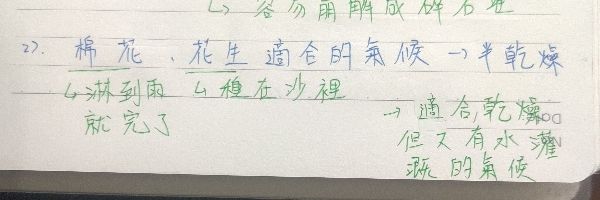 ↳ 容易崩解成碎石地
27. 棉花、花生適合的氣候 → 半乾燥
↳ 淋到雨 ↳ 種在沙裡
就完了
→ 適合乾燥
但又有水灌
溉的氣候